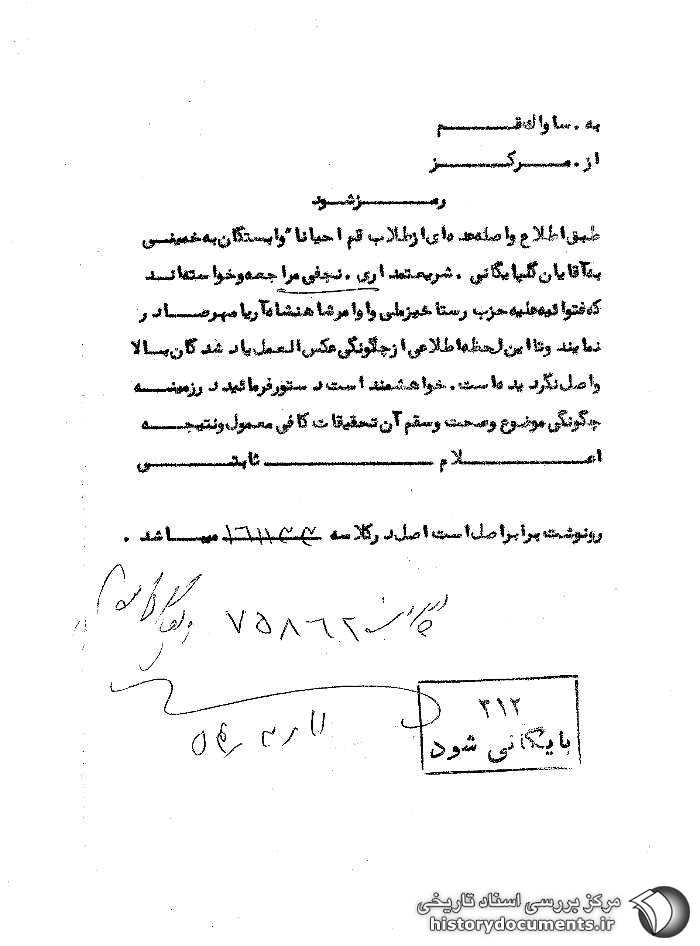 به . ساواك قــــم
از . مـــركـــــز
رمـــــزشـــود
طبق اطلاع واصله عده ای از طلاب قم احیانا" وابستگان به خمینی
به آقایان گلپایگانی . شریعتمداری . نجفی مراجعه و خواسته انــد
که فتوائی علیه حزب رستاخیز ملی و اوامر شاهنشاه آریامهر صــادر
نمایند و تا این لحظه اطلاعی از چگونگی عکس العمل یاد شدگان بــالا
واصل نگردیده است . خواهشمند است دستور فرمائید در زمینــــه
چگونگی موضوع و صحت و سقم آن تحقیقات کافی معمول و نتیجــــه
اعـــــلام ـــــــــــ ثابتـــی
رونوشت برابر اصل است اصل در کلاسه ۱۶۱۱۳۳ میبـــاشد .
۷۵۸۶۲
۳۱۲
بایگانی شود
مرکز بررسی اسناد تاریخی
historydocuments.ir